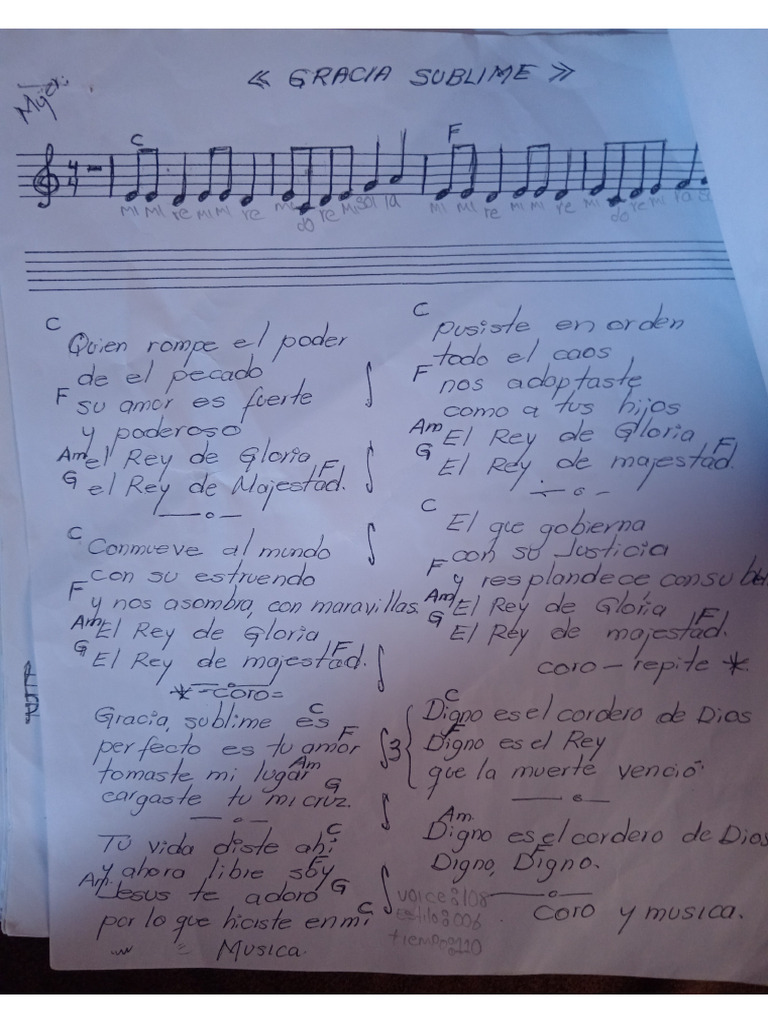 « GRACIA SUBLIME »
C F
4/4
mi mi re mi mi re mi do re mi sol la mi mi re mi mi re mi do re mi
C
Quien rompe el poder
de el pecado
F su amor es fuerte
y poderoso
Am el Rey de Gloria
G el Rey de Majestad. F
C Conmueve al mundo
con su estruendo
F y nos asombra, con maravillas.
Am El Rey de Gloria
G El Rey de majestad. F
* - coro =
Gracia, sublime es C
perfecto es tu amor F
tomaste mi lugar Am
cargaste tu mi cruz. G
Tu vida diste ahi C
y ahora libre soy F
Am Jesus te adoro G
por lo que hiciste en mi C
Musica.
C
pusiste en orden
todo el caos,
F nos adoptaste
como a tus hijos
Am El Rey de Gloria
G El Rey de majestad. F
C
El que gobierna
con su Justicia
F y resplandece con su
Am El Rey de Gloria
G El Rey de majestad. F
coro - repite *.
C
3 { Digno es el cordero de Dios
F
Digno es el Rey
que la muerte venció
Am
Digno es el cordero de Dios
Digno, Digno. F
Coro y musica.
voice 108
estilo 006
tiempo 110